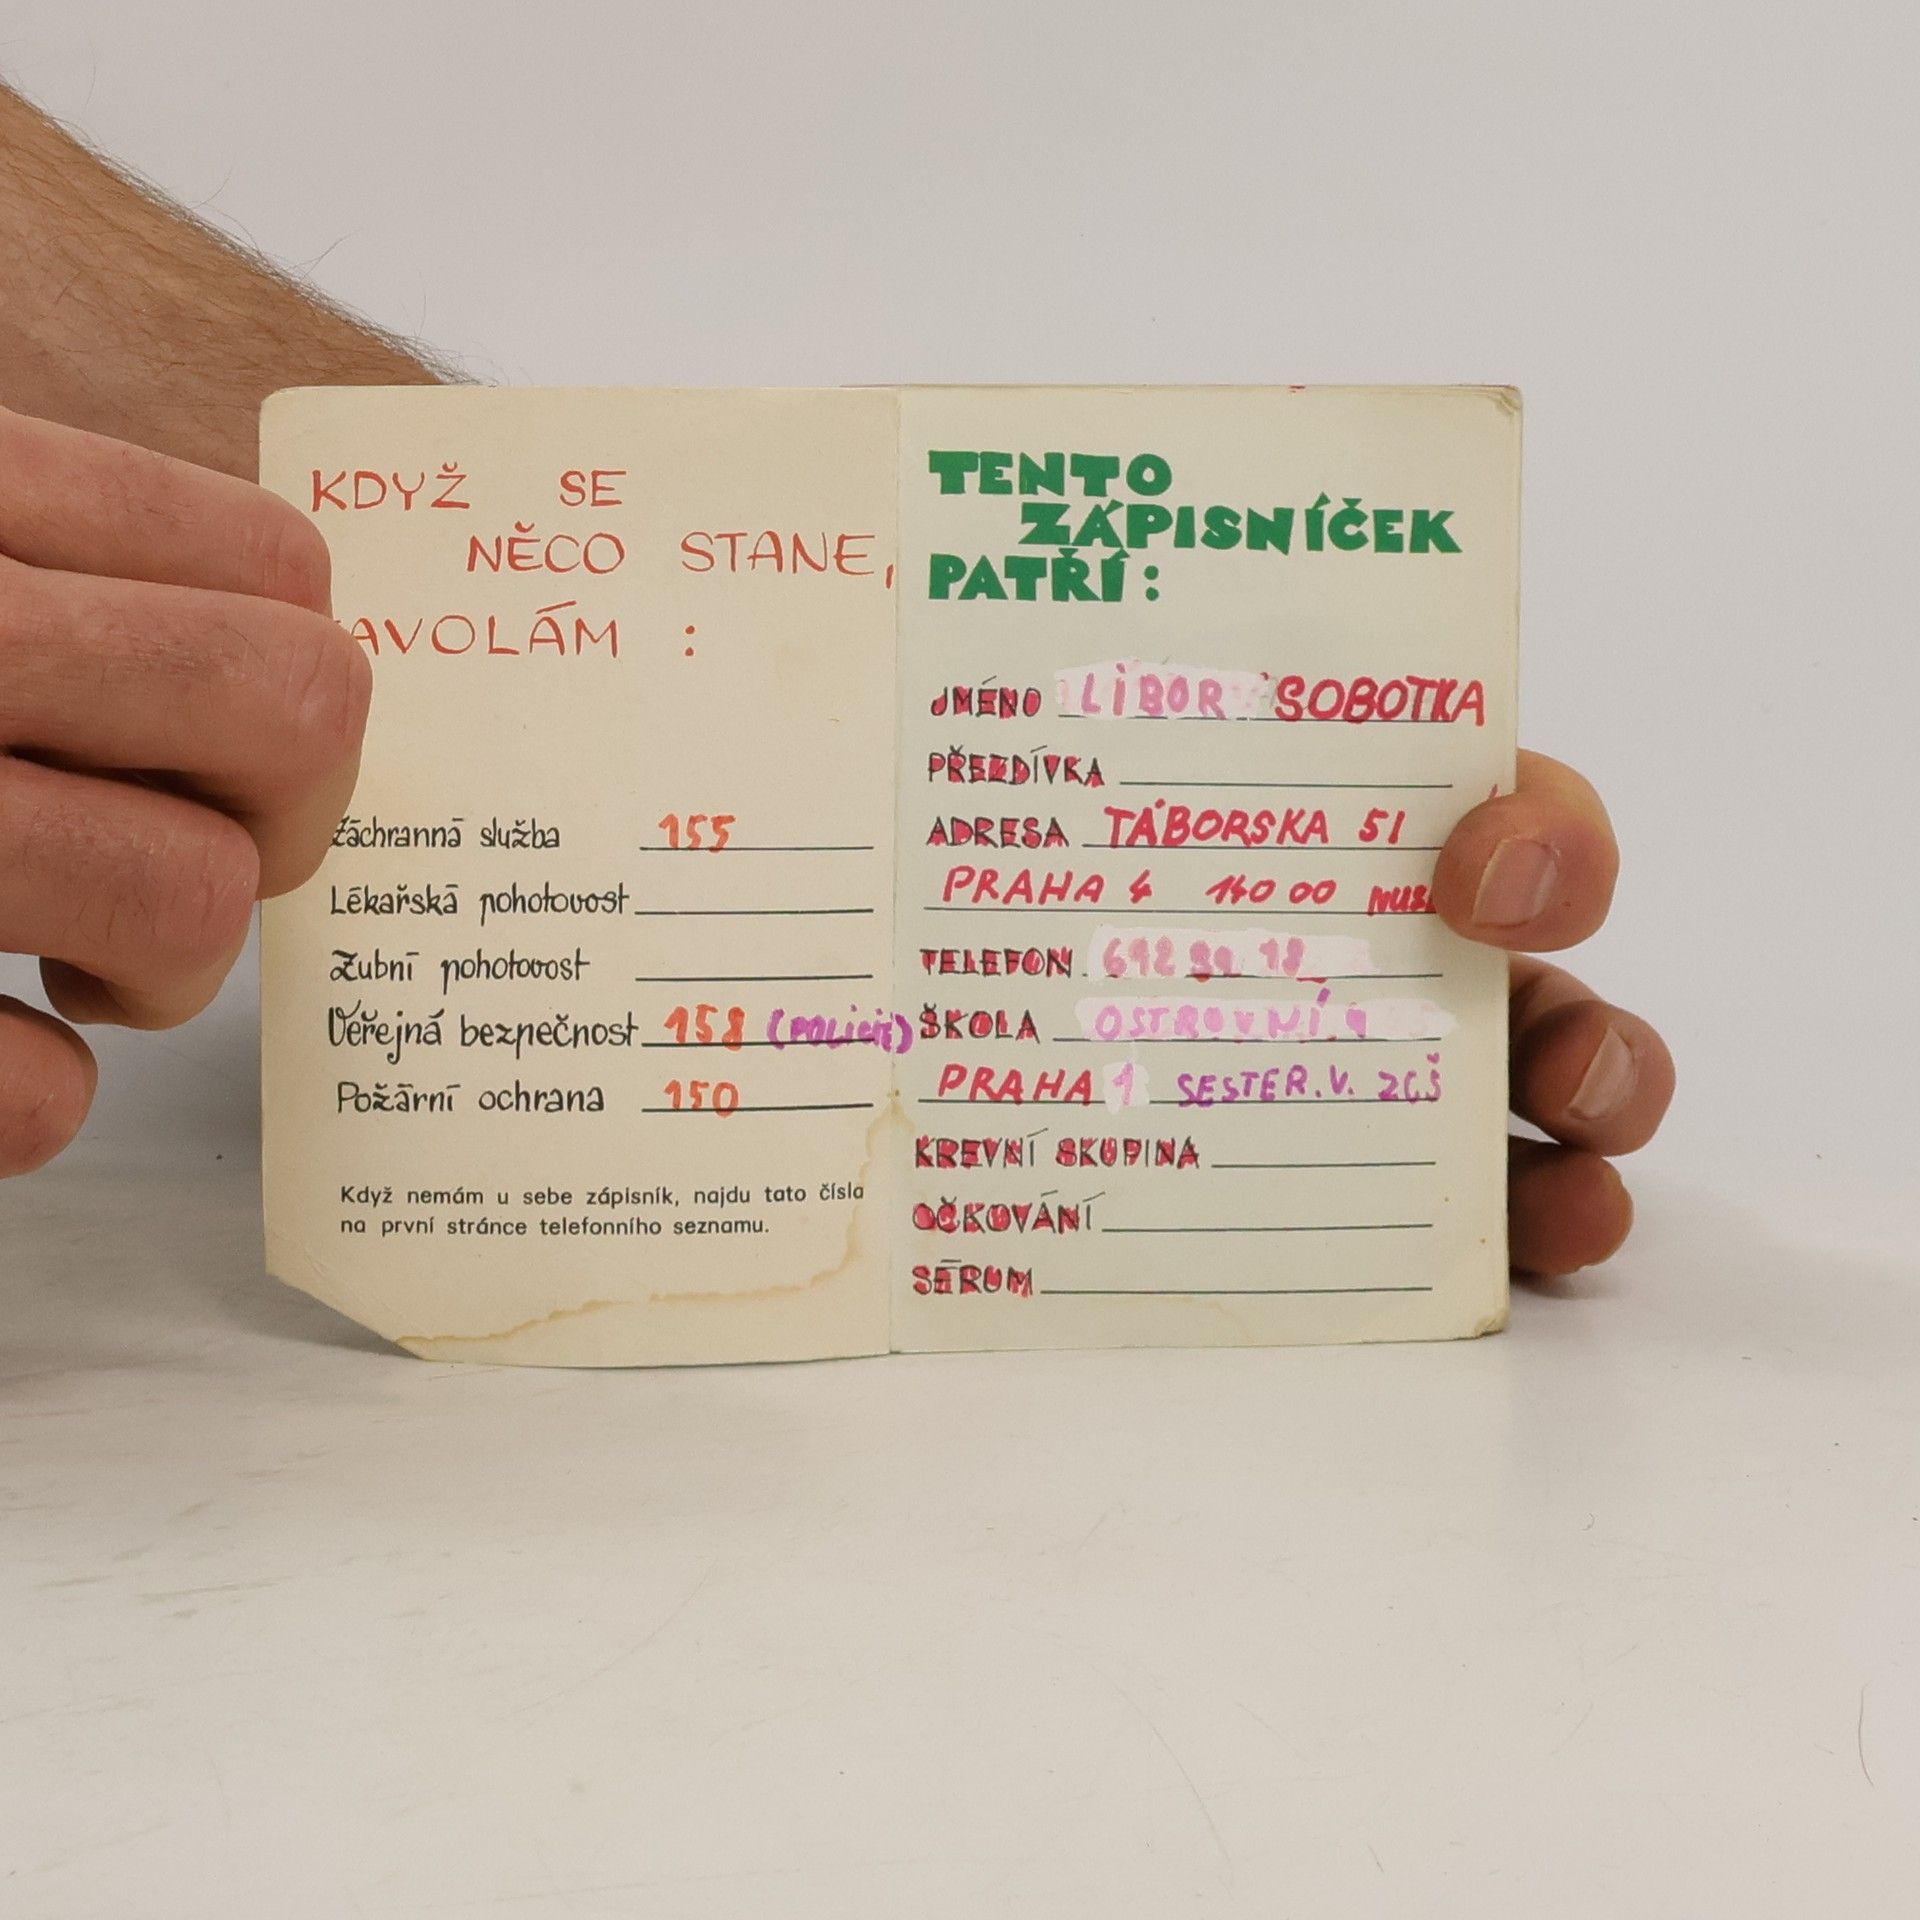 KDYŽ SE
NĚCO STANE,
AVOLÁM :
Záchranná služba 155
Lékařská pohotovost
Zubní pohotovost
Veřejná bezpečnost 158 (POLICIE)
Požární ochrana 150
Když nemám u sebe zápisník, najdu tato čísla
na první stránce telefonního seznamu.
TENTO
ZÁPISNÍČEK
PATŘÍ :
JMÉNO LIBOR SOBOTKA
PŘEZDÍVKA
ADRESA TÁBORSKA 51
PRAHA 4 140 00
TELEFON
ŠKOLA OSTROVNÍ
PRAHA 1 SESTER.V.
KREVNÍ SKUPINA
OČKOVÁNÍ
SÉRUM